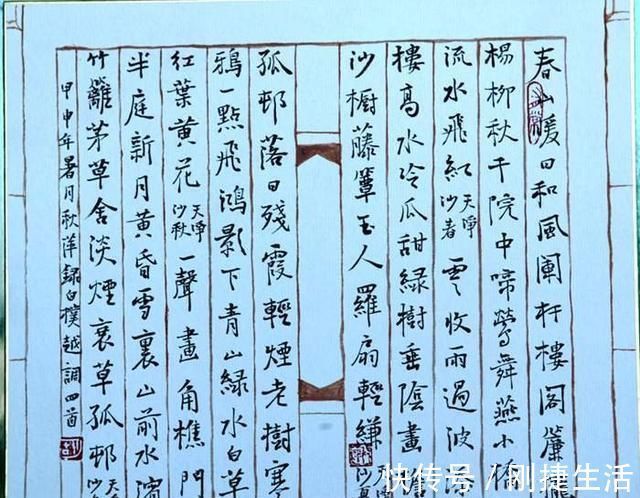 春山暖日和風闌杆樓閣簾
楊柳秋千院中啼鶯舞燕小
流水飛紅天淨沙春雲收雨過波
樓高水冷瓜甜綠樹垂陰畫
沙橱藤簟玉人羅扇輕縑
孤邨落日殘霞輕煙老樹寒
鴉一點飛鴻影下青山綠水白草
紅葉黃花天淨沙秋一聲畫角樵門
半庭新月黃昏雪裏山前水濱
竹籬茅草舍淡煙衰草孤邨天淨
甲申年暑月秋萍錄白樸越調四首
快传号/刚捷生活